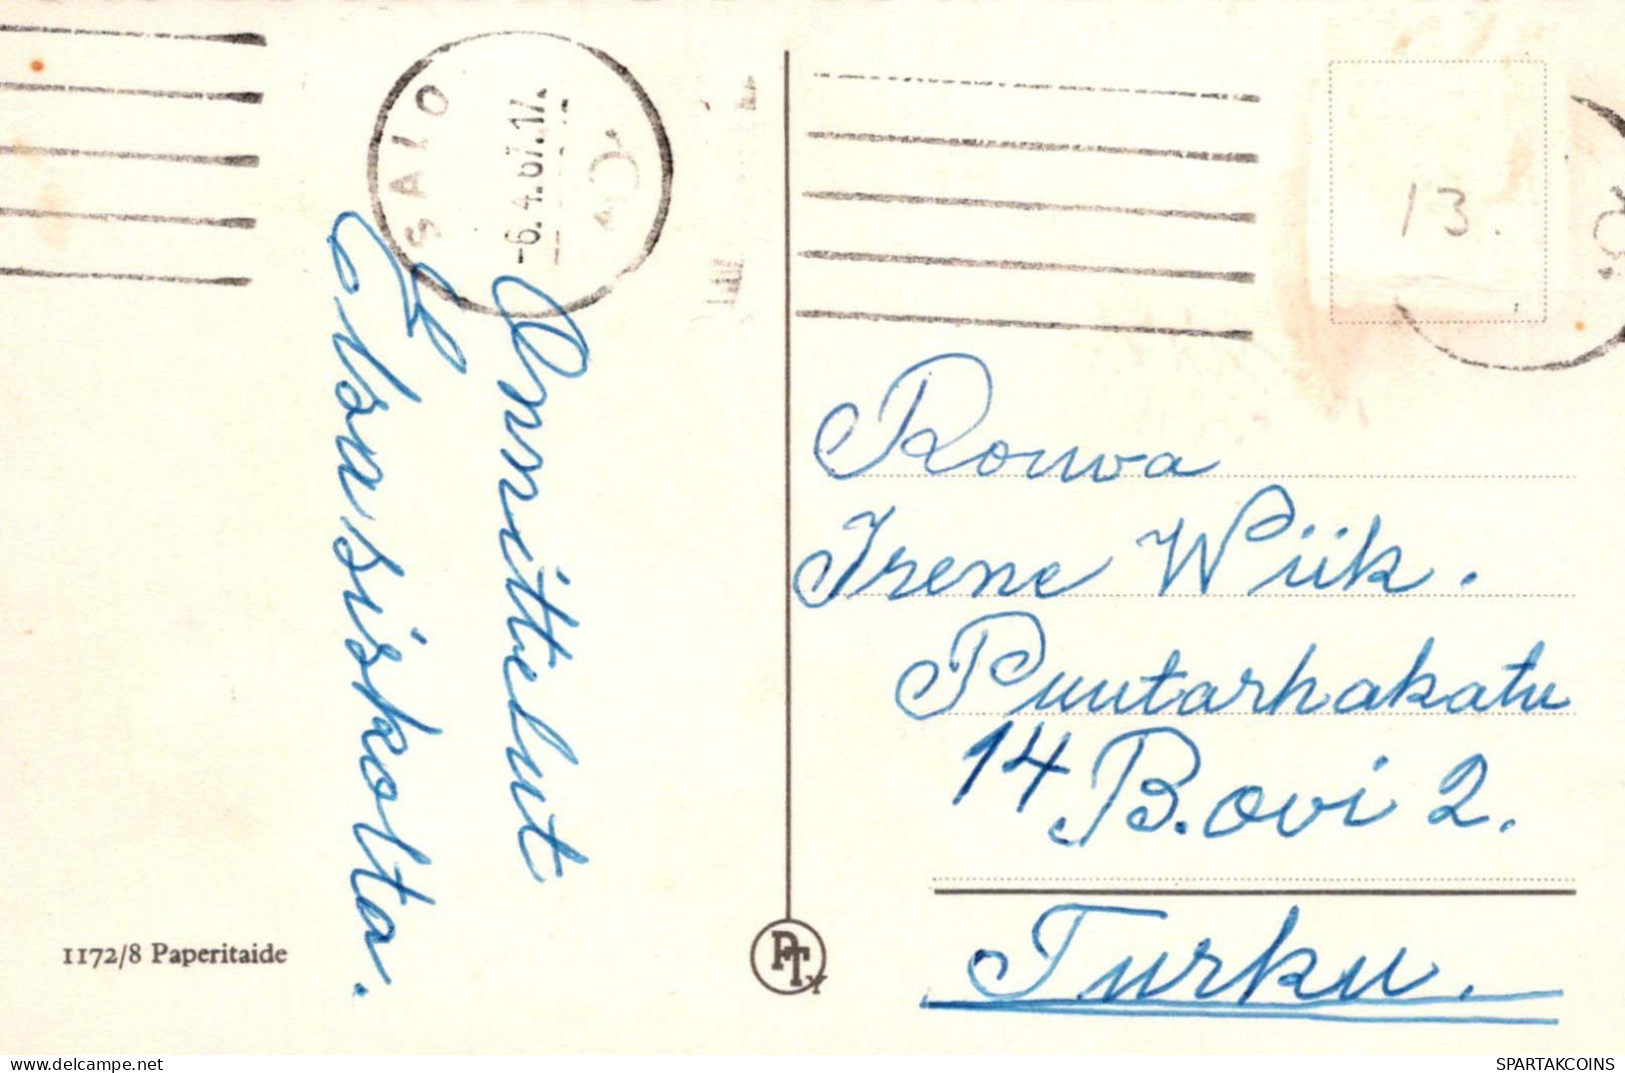 SALO
-6.4.67.17
13.
Onnittelut
Elsasiskolta.
Rouva
Irene Wiik.
Puutarhakatu
14 B. ovi 2.
Turku.
1172/8 Paperitaide
PTy
delcampe.net
SPARTAKCOINS